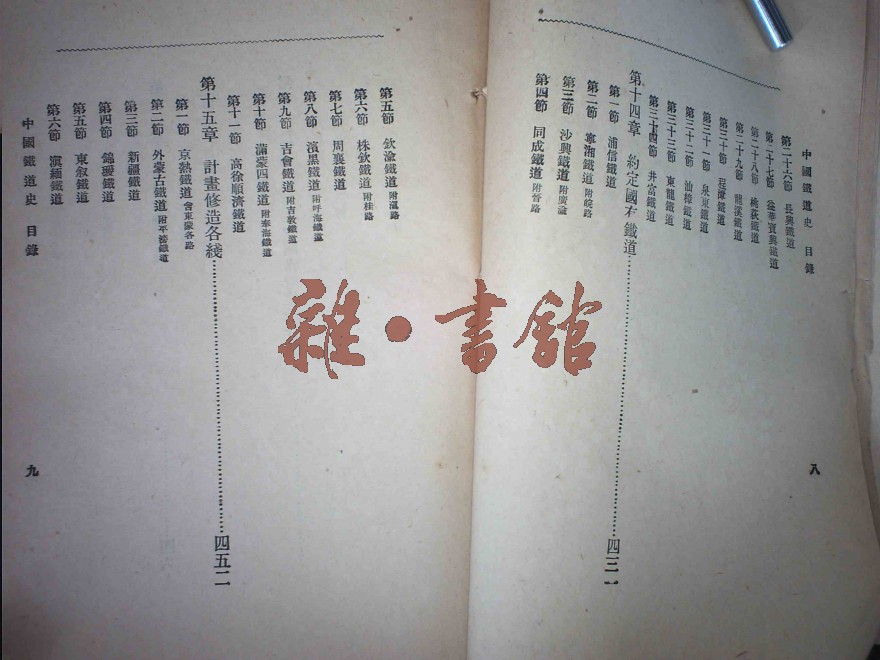 中國鐵道史 目錄
第二十六節 長興鐵道
第二十七節 益華寶興鐵道
第二十八節 桃荻鐵道
第二十九節 龍溪鐵道
第三十節 程潭鐵道
第三十一節 泉東鐵道
第三十二節 汕樟鐵道
第三十三節 東龍鐵道
第三十四節 井富鐵道
第十四章 約定國有鐵道 四三一
第一節 浦信鐵道
第二節 寧湘鐵道 附皖路
第三節 沙興鐵道 附廣渝
第四節 同成鐵道 附晉路
八
第五節 欽渝鐵道 附滇路
第六節 株欽鐵道 附桂路
第七節 周襄鐵道
第八節 濱黑鐵道 附呼海鐵道
第九節 吉會鐵道 附吉敦鐵道
第十節 滿蒙四鐵道 附奉海鐵道
第十一節 高徐順濟鐵道
第十五章 計畫修造各綫 四五二
第一節 京熱鐵道 會東蒙各路
第二節 外蒙古鐵道 附平滂鐵道
第三節 新疆鐵道
第四節 錦璦鐵道
第五節 東叙鐵道
第六節 滇緬鐵道
中國鐵道史 目錄
九
雜·書館